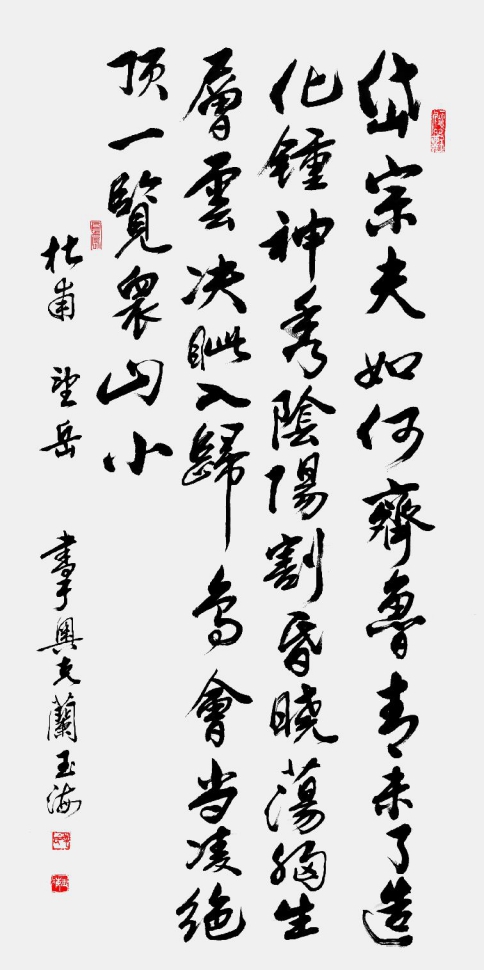 岱宗夫如何齊魯青未了造
化鍾神秀陰陽割昏曉蕩胸生
層雲决眦入歸鳥會当凌絕
顶一覽衆山小
杜甫 望岳 書于奧克蘭玉海